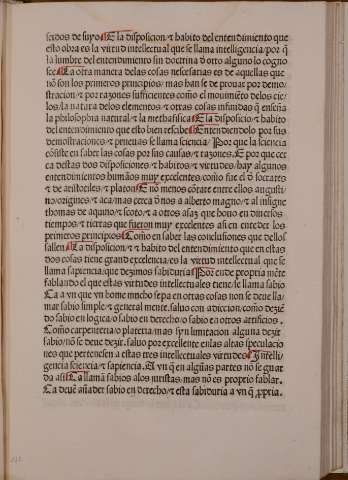 scidos de suyo/E la disposicion/τ habito del entendimento que
esto obra es la virtud intellectual que se llama intelligencia/por q̃
la lumbre del entendimiento sin doctrina d̃ otro alguno lo cogno
sce/La otra manera delas cosas necessarias es de aquellas que
nõ son los primeros principios/mas han se de prouar por demo
stracion/τ por razones sufficientes como el mouimẽto delos cie
los/la natura delos elementos τ otras cosas infinidas q̃ enseña
la philosophia natural/τ la methafisica/E la disposiciõ/τ habito
del entendimiento que esto bien rescibe/Entendiendolo por sus
demostraciones/τ prueuas se llama sciencia/Por que la sciencia
cõsiste en saber las cosas por sus causas/τ razones/E por que cer
ca destas dos disposiciones/τ habitos/τ virtudes/hay algunos
entendimientos humãos muy excelentes/como fue el d̃ socrates
τ de aristotiles/τ platon/E nõ menos cõtare entre ellos augusti
no/origines/τ aca/mas cerca d̃ nos a alberto magno/τ al insigne
thomas de aquino/scoto/τ a otros asaz que houo en diuersos
tiempos/τ tierras que fueron muy excelentes asi en enteder los
primeros principios/Como en saber las conclusiones que dellos
sallen/La disposicion/τ habito del entendimiento que en estas
dos cosas tiene grand excelencia/es la virtud intellectual que se
llama sapiencia/que dezimos sabiduria/Por ende propria mẽte
fablando el que estas virtudes intellectuales tiene/se llama sabio
Ca a vn que vn home mucho sepa en otras cosas non se deue lla/
mar sabio simple/τ general mente. saluo con adiccion/como dezie
do sabio en logica/o sabio en derecho/o sabio en otros artificios.
Como carpenteria/o plateria/mas syn limitacion alguna dezir
sabio/nõ se deue dezir. saluo por excellente enlas altas speculacio
nes que pertenesen a estas tres intellectuales virtudes/Intelli
gencia sciencia/τ sapiencia. A vn q̃ en algũas partes nõ se guar
da asi/Ca llamã sabios alos iuristas/mas nõ es proprio fablar.
Ca deue añader sabio en derecho/τ esta sabiduria a vn q̃ ꝓpria.